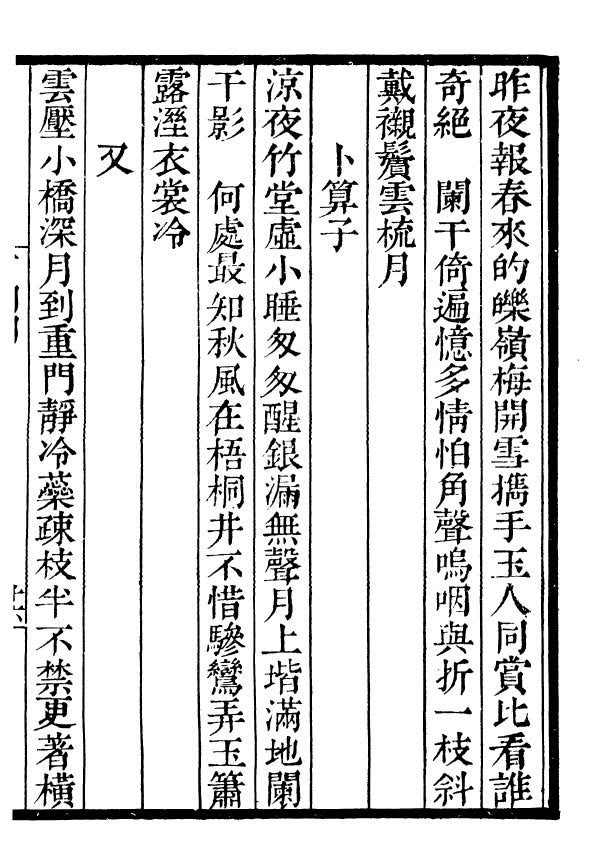 昨夜報春來的皪嶺梅開雪攜手玉人同賞比看誰
奇絕　闌干倚遍憶多情怕角聲嗚咽與折一枝斜
戴襯鬢雲梳月
卜算子
涼夜竹堂虛小睡匆匆醒銀漏無聲月上堦滿地闌
干影　何處最知秋風在梧桐井不惜驂鸞弄玉簫
露溼衣裳冷
又
雲壓小橋深月到重門靜冷蘂疎枝半不禁更著橫